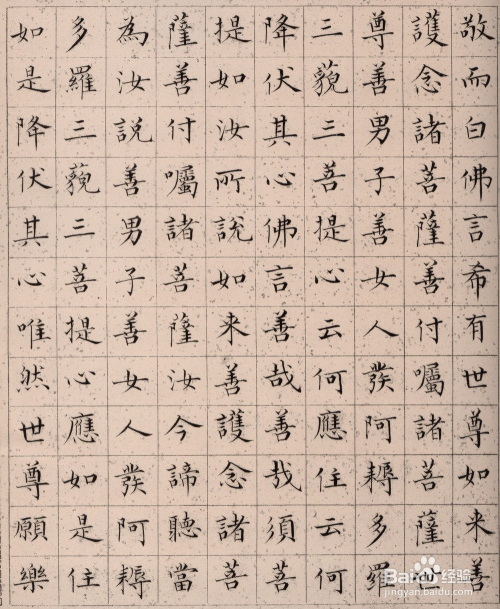 敬而白佛言希有世尊如来善
護念諸菩薩善付囑諸菩薩世
尊善男子善女人發阿耨多羅
三藐三菩提心云何應住云何
降伏其心佛言善哉善哉須菩
提如汝所說如来善護念諸菩
薩善付囑諸菩薩汝今諦聽當
為汝說善男子善女人發阿耨
多羅三藐三菩提心應如是住
如是降伏其心唯然世尊願樂
Baidu经验
jingyan.baidu.com